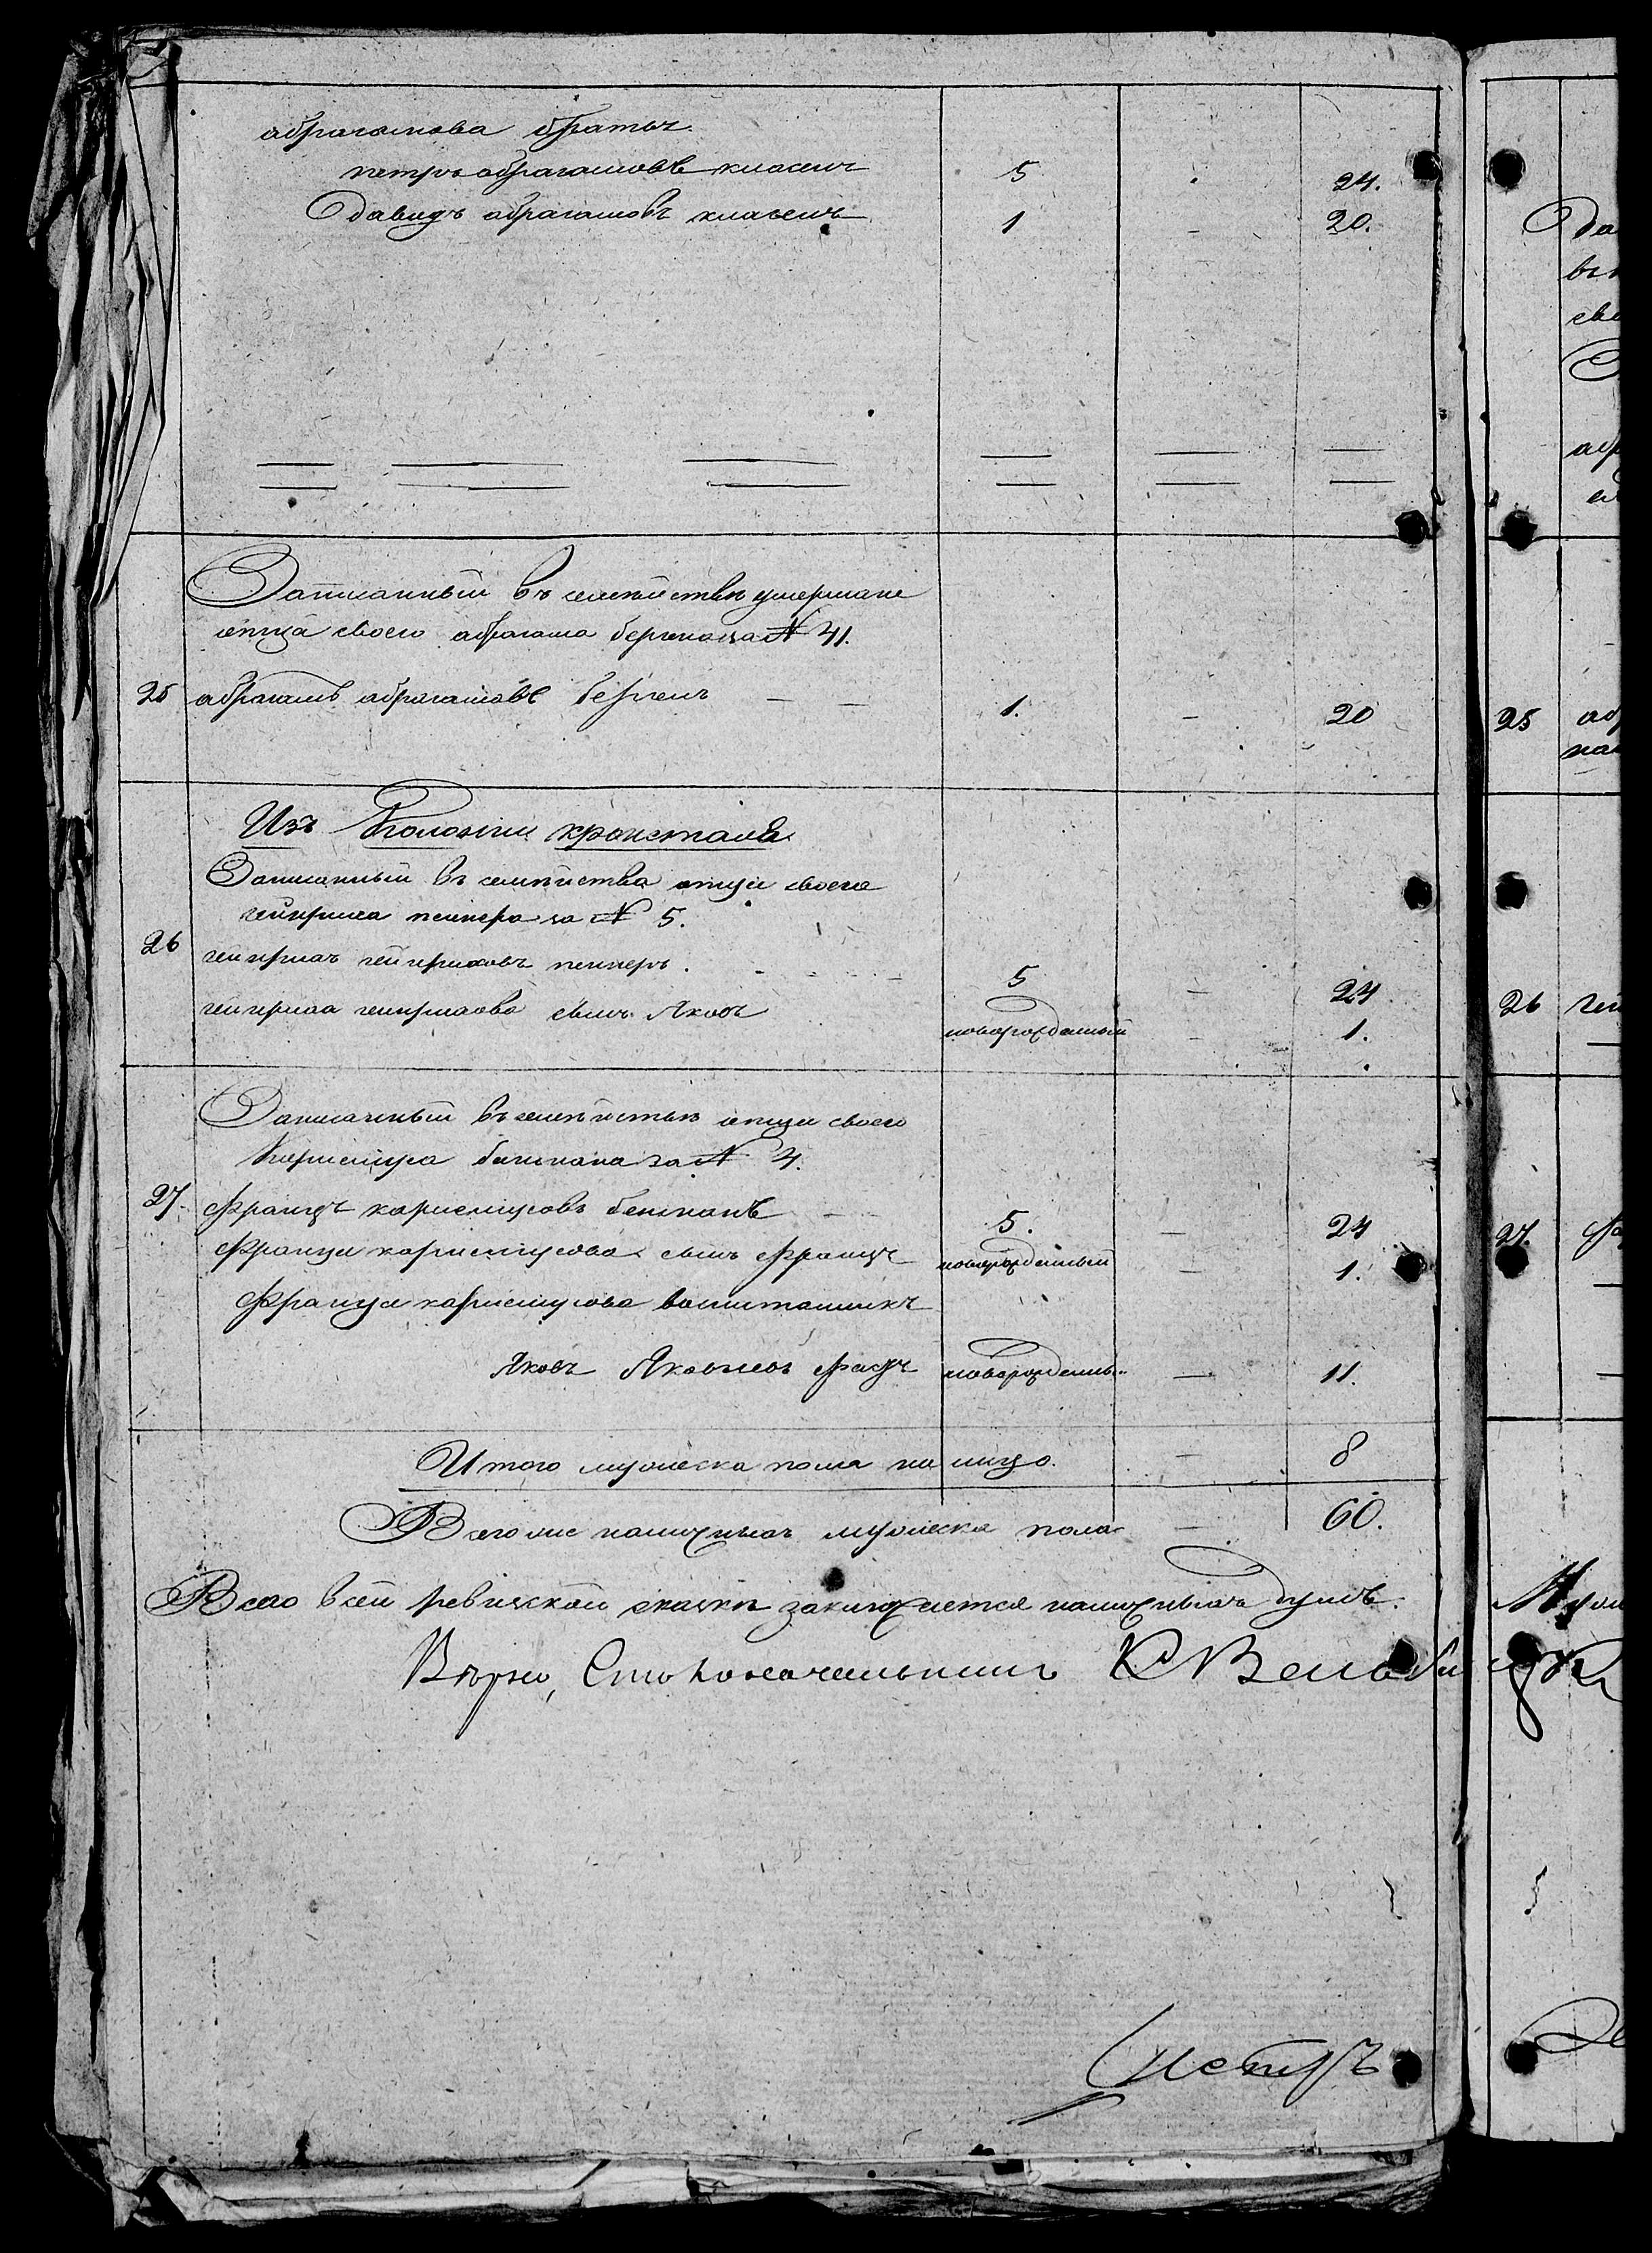 абрагамова братья
петръ абрагамовъ класенъ 5 24.
Давидъ абрагамовъ класенъ 1 – 20.
Записанный въ семействѣ умершаго
отца своего абрагама бергена за № 41.
25 абрагамъ абрагамовъ бергенъ — — 1. – 20
Изъ Колонiи кронсталь
Записанный въ семѣйства отца своего
гейнриха пеннера за № 5.
26 гейнрихъ гейнриховъ пеннеръ. 5 – 24
гейнриха гейнрихова сынъ Яковъ новорожденный – 1.
Записанный въ семѣйствѣ отца своего
Корнелиуса бекмана за № 4.
27. Францъ корнелиусовъ бекманъ — 5. – 24
Франца корнелиусова сынъ Францъ новорожденный – 1.
Франца корнелиусова воспитанникъ
Яковъ Яковлевъ новорожденны — 11.
Итого мужеска пола на лицо. – 8
Всего же наличныхъ мужеска пола – 60.
Всего в сей ревизской сказкѣ заключается наличныхъ душъ.
Вѣрно, Столоначальникъ
25
26 гей
27. Фр